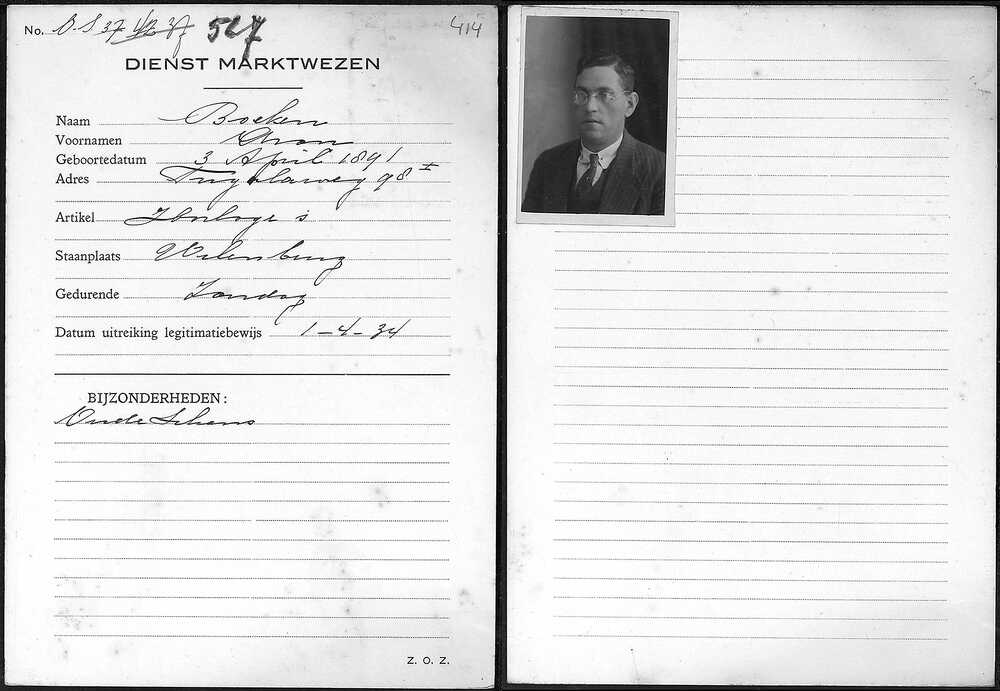 No. O.S 37 42 37 527 414
DIENST MARKTWEZEN
Naam Boeken
Voornamen Aron
Geboortedatum 3 April 1891
Adres Tugelaweg 98 I
Artikel Horloge's
Staanplaats Uilenburg
Gedurende Zondag
Datum uitreiking legitimatiebewijs 1-4-34
BIJZONDERHEDEN:
Oude Schans
Z. O. Z.